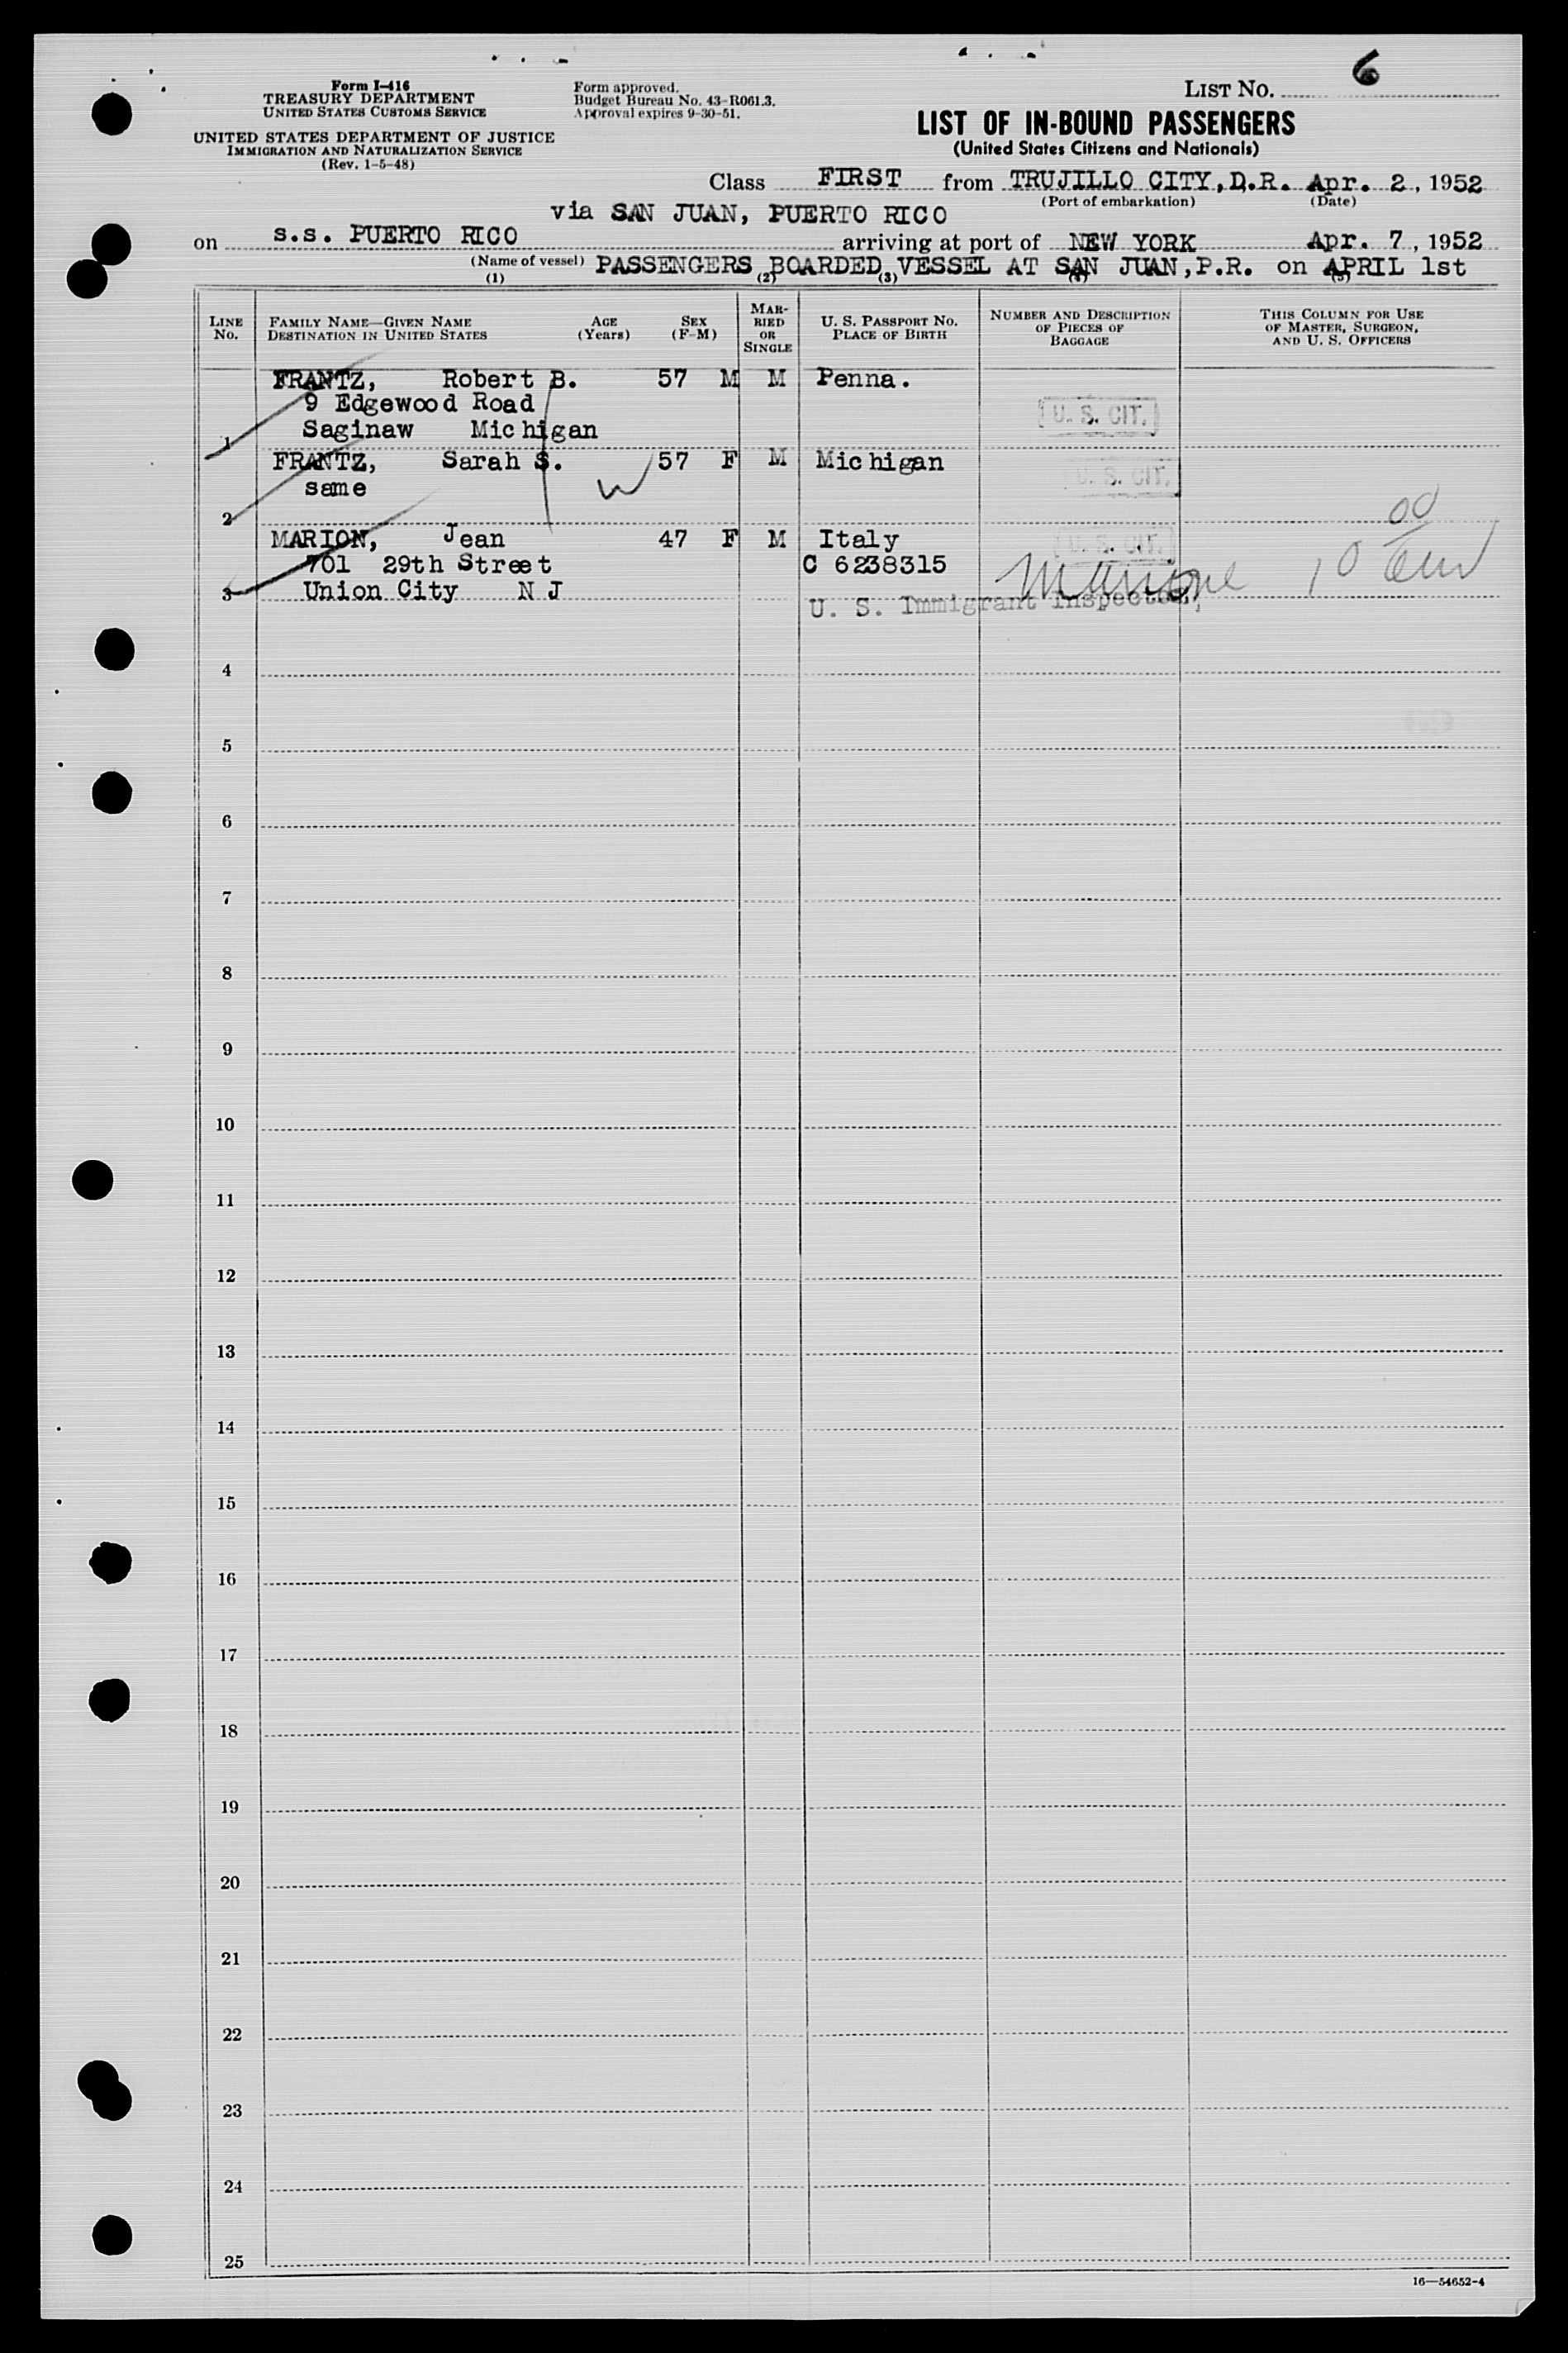 Form I-416
TREASURY DEPARTMENT
UNITED STATES CUSTOMS SERVICE
UNITED STATES DEPARTMENT OF JUSTICE
IMMIGRATION AND NATURALIZATION SERVICE
(Rev. 1-5-48)
Form approved.
Budget Bureau No. 43-R061.3.
Approval expires 9-30-51.
LIST NO. 6
LIST OF IN-BOUND PASSENGERS
(United States Citizens and Nationals)
Class FIRST from TRUJILLO CITY, D.R. Apr. 2, 1952
(Port of embarkation) (Date)
via SAN JUAN, PUERTO RICO
on s.s. PUERTO RICO arriving at port of NEW YORK Apr. 7, 1952
(Name of vessel) PASSENGERS BOARDED VESSEL AT SAN JUAN, P.R. on APRIL 1st
(1) (2) (3) (4) (5)
LINE NO.
FAMILY NAME—GIVEN NAME
DESTINATION IN UNITED STATES
AGE (Years)
SEX (F-M)
MARRIED OR SINGLE
U. S. PASSPORT NO.
PLACE OF BIRTH
NUMBER AND DESCRIPTION OF PIECES OF BAGGAGE
THIS COLUMN FOR USE OF MASTER, SURGEON, AND U. S. OFFICERS
FRANTZ, Robert B. 57 M M Penna.
9 Edgewood Road
U. S. CIT.
1 Saginaw Michigan
FRANTZ, Sarah S. 57 F M Michigan
U. S. CIT.
same W
2
00
MARION, Jean 47 F M Italy
U. S. CIT.
701 29th Street C 6238315
3 Union City N J
10
U. S. Immigrant Inspector,
4
5
6
7
8
9
10
11
12
13
14
15
16
17
18
19
20
21
22
23
24
25
16—54652-4